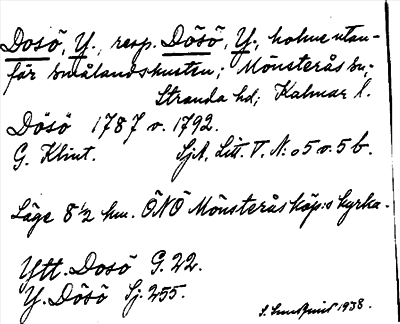 Dosö, Y., resp. Dösö, Y., holme utan-
för Smålandskusten; Mönsterås sn;
Stranda hd; Kalmar l.
Dösö 1787 o. 1792.
G. Klint. Sjk, Litt. V. N:o 5 o. 5 b.
Läge 8 1/2 km. ÖNÖ Mönsterås köp:s kyrka.
Ytt. Dosö G. 22.
Y. Dösö Sj. 255.
1938.